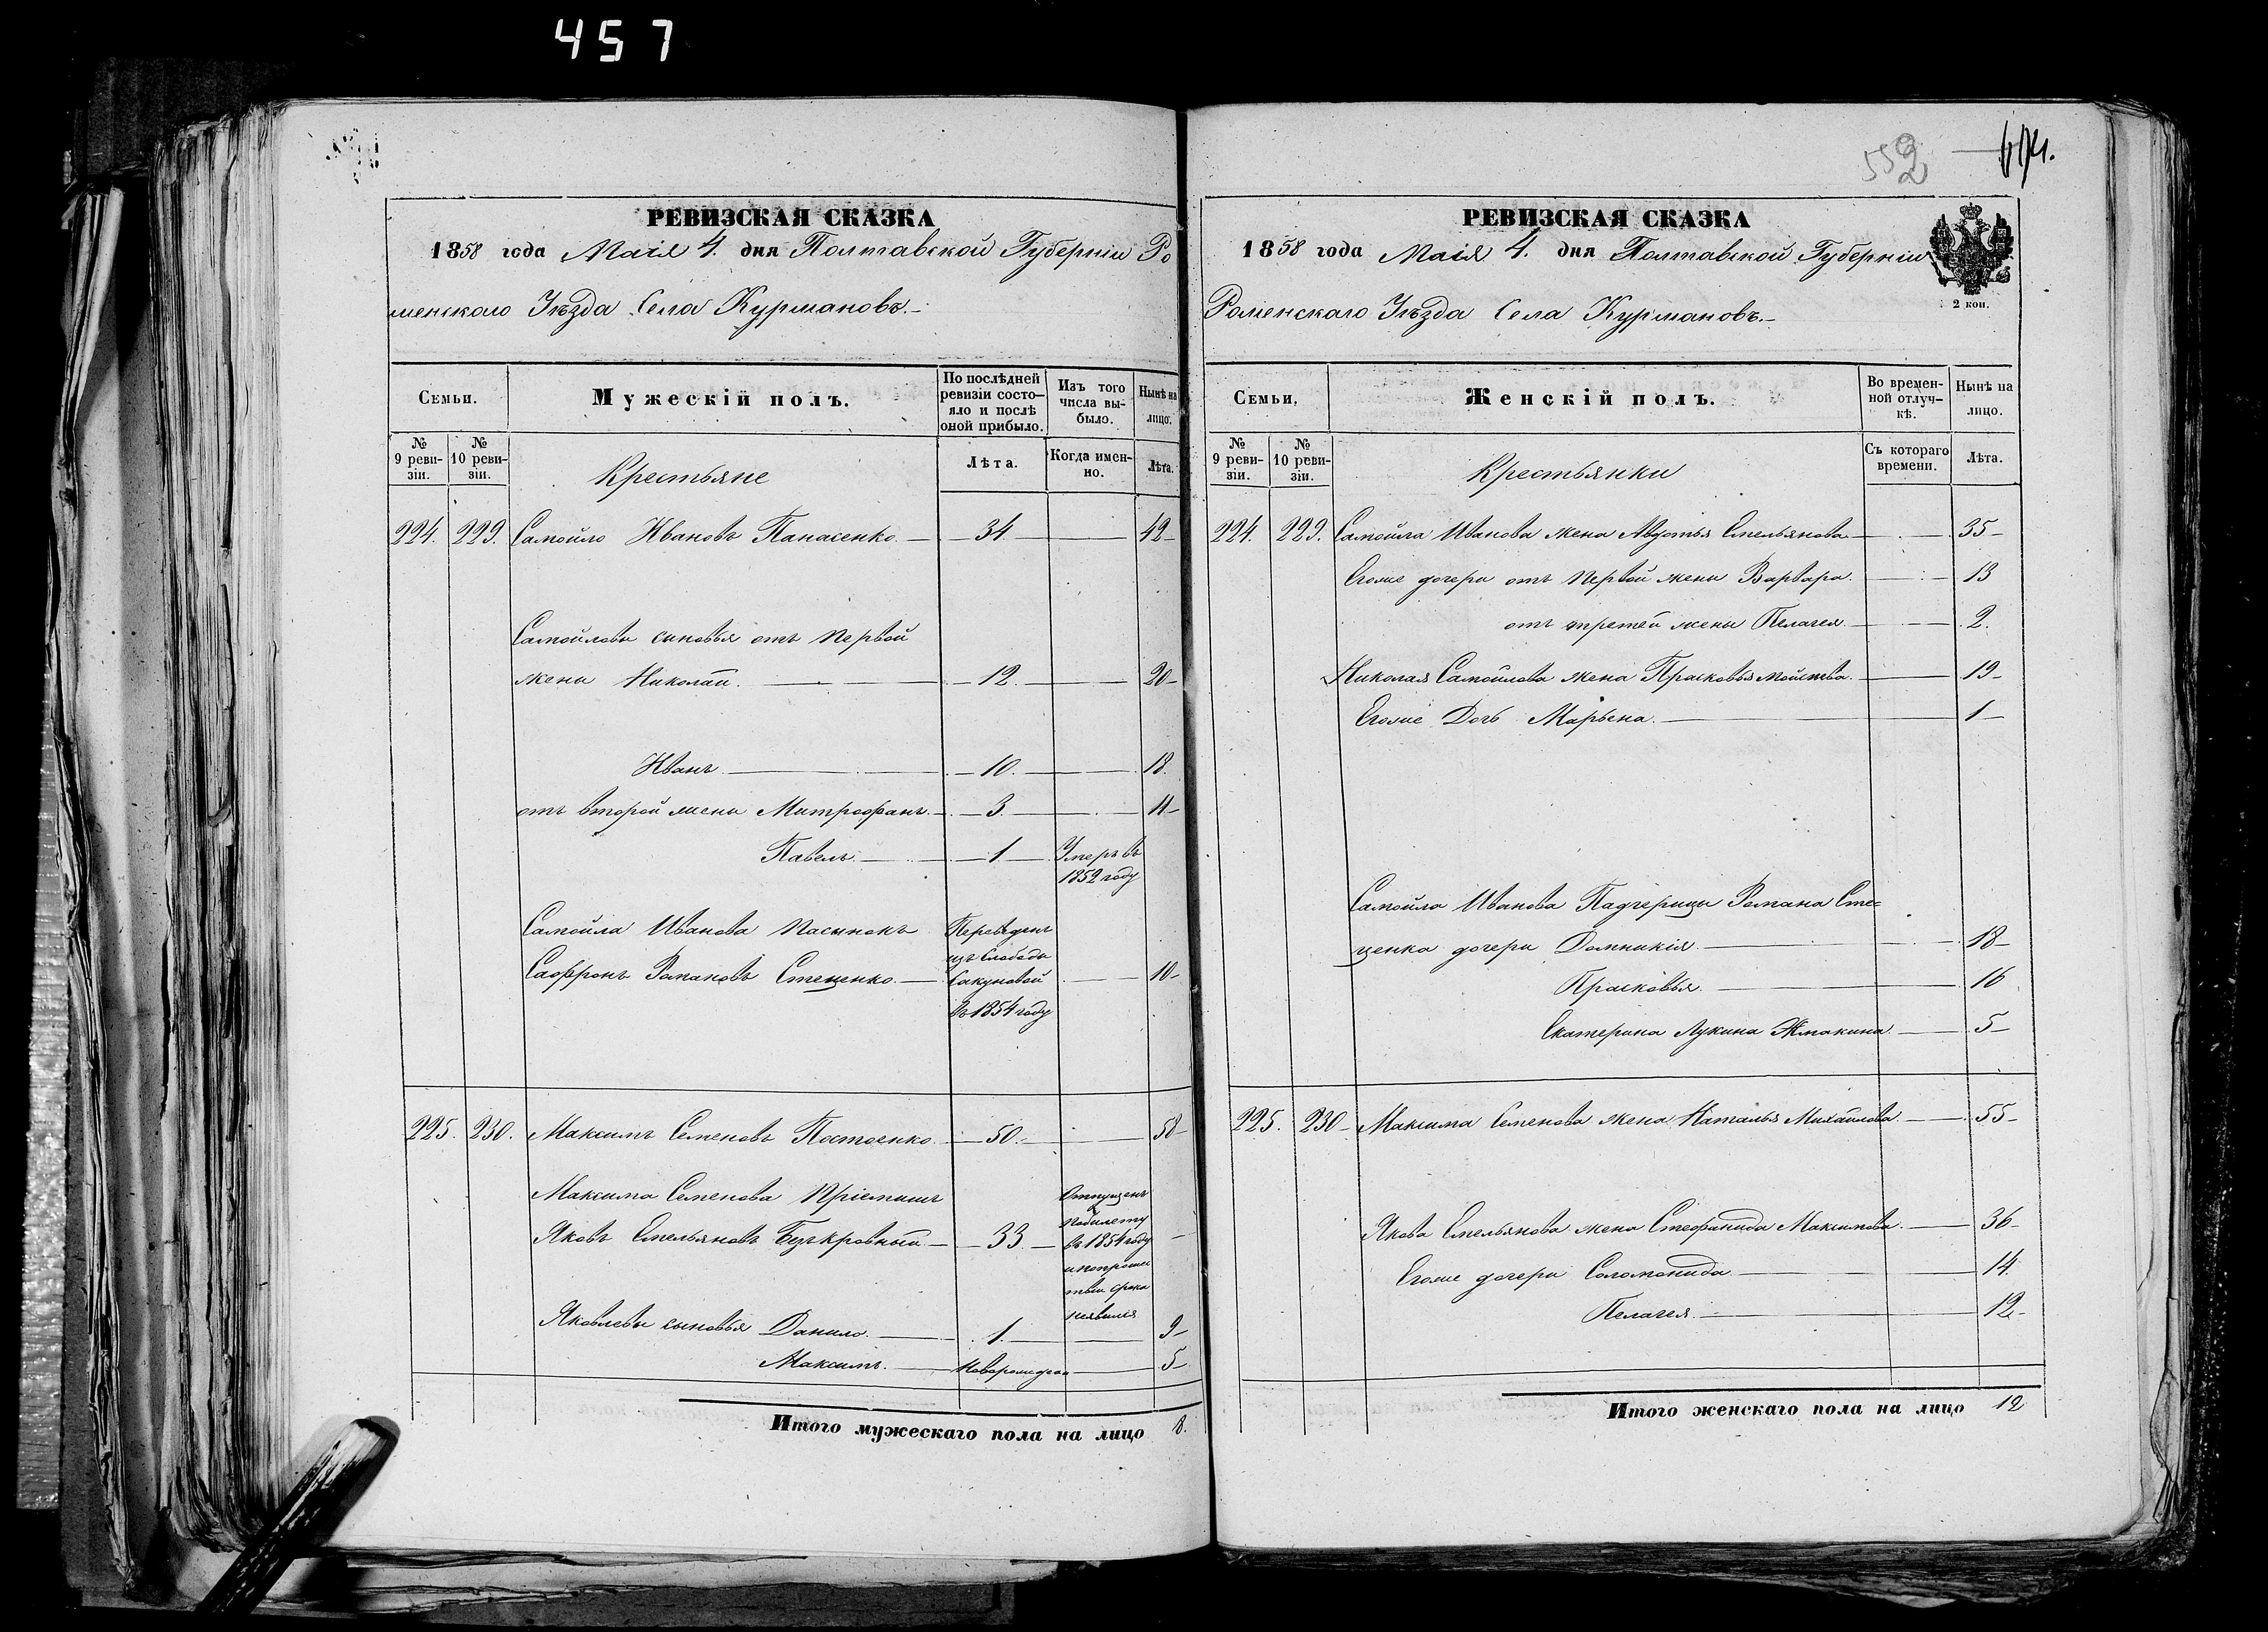 457
РЕВИЗСКАЯ СКАЗКА
1858 года Маія 4. дня Полтавской Губерніи Ро
менскаго Уѣзда Села Курмановъ.
Семьи.
Мужескій полъ.
По послѣдней ревизіи состояло и послѣ оной прибыло.
Изъ того числа выбыло.
Нынѣ на лицо.
№ 9 ревизіи.
№ 10 ревизіи.
Крестьяне
Лѣта.
Когда именно.
Лѣта.
224. 229. Самойло Ивановъ Панасенко 34 42
Самойловы сыновья отъ первой
жены Николай. 12 20
Иванъ 10. 18.
отъ второй жены Митрофанъ 3. 11
Павелъ 1 Умеръ въ
1852 году
Самойла Иванова пасынокъ Переведенъ
изъ Слободы
Сафронъ Романовъ Стеценко Сакуновой 10
въ 1854 году
225. 230. Максимъ Семеновъ Костоенко. 50. 58
Максима Семенова пріемышъ Отпущенъ
побилету
Яковъ Емельяновъ Безкровный 33. въ 1854 году
срока
неявился
Яковлевы сыновья Данило. 1. 9
Максимъ. Новорожден 5
Итого мужескаго пола на лицо 8.
552
РЕВИЗСКАЯ СКАЗКА
1858 года Маія 4. дня Полтавской Губерніи
2 коп.
Роменскаго Уѣзда Села Курмановъ.
Семьи.
Женскій полъ.
Во временной отлучкѣ.
Нынѣ на лицо.
№ 9 ревизіи.
№ 10 ревизіи.
Крестьянки
Съ котораго времени.
Лѣта.
224. 229. Самойла Иванова жена Авдотья Емельянова 35
Егоже дочери отъ первой жены Варвара. 13
отъ третей жены Пелагея 2.
Николая Самойлова жена Прасковья Мойсѣева. 19
Егоже Дочь Марьена. 1
Самойла Иванова Падчерицы Романа Сте-
ценка дочери Домникія 18
Прасковья. 16
Екатерина Лукина Жмакина 5
225. 230 Максима Семенова жена Наталья Михайлова 55
Якова Емельянова жена Стефанида Максимова. 36
Егоже дочери Соломонида 14.
Пелагея 12
Итого женскаго пола на лицо 12